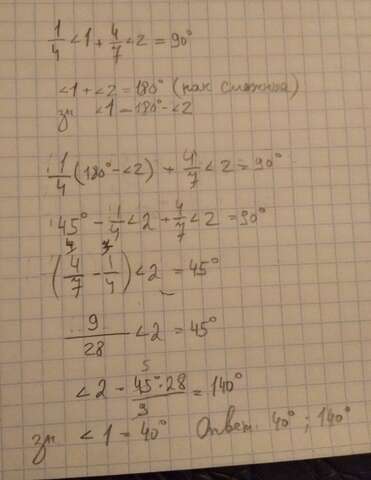 1/4 <1 + 4/7 <2 = 90°
<1 + <2 = 180° (как смежные)
зн. <1 = 180° - <2
1/4 (180° - <2) + 4/7 <2 = 90°
45° - 1/4 <2 + 4/7 <2 = 90°
(4/7 - 1/4) <2 = 45°
9/28 <2 = 45°
<2 = 45°·28/9 = 140°
зн. <1 = 40° Ответ: 40°; 140°